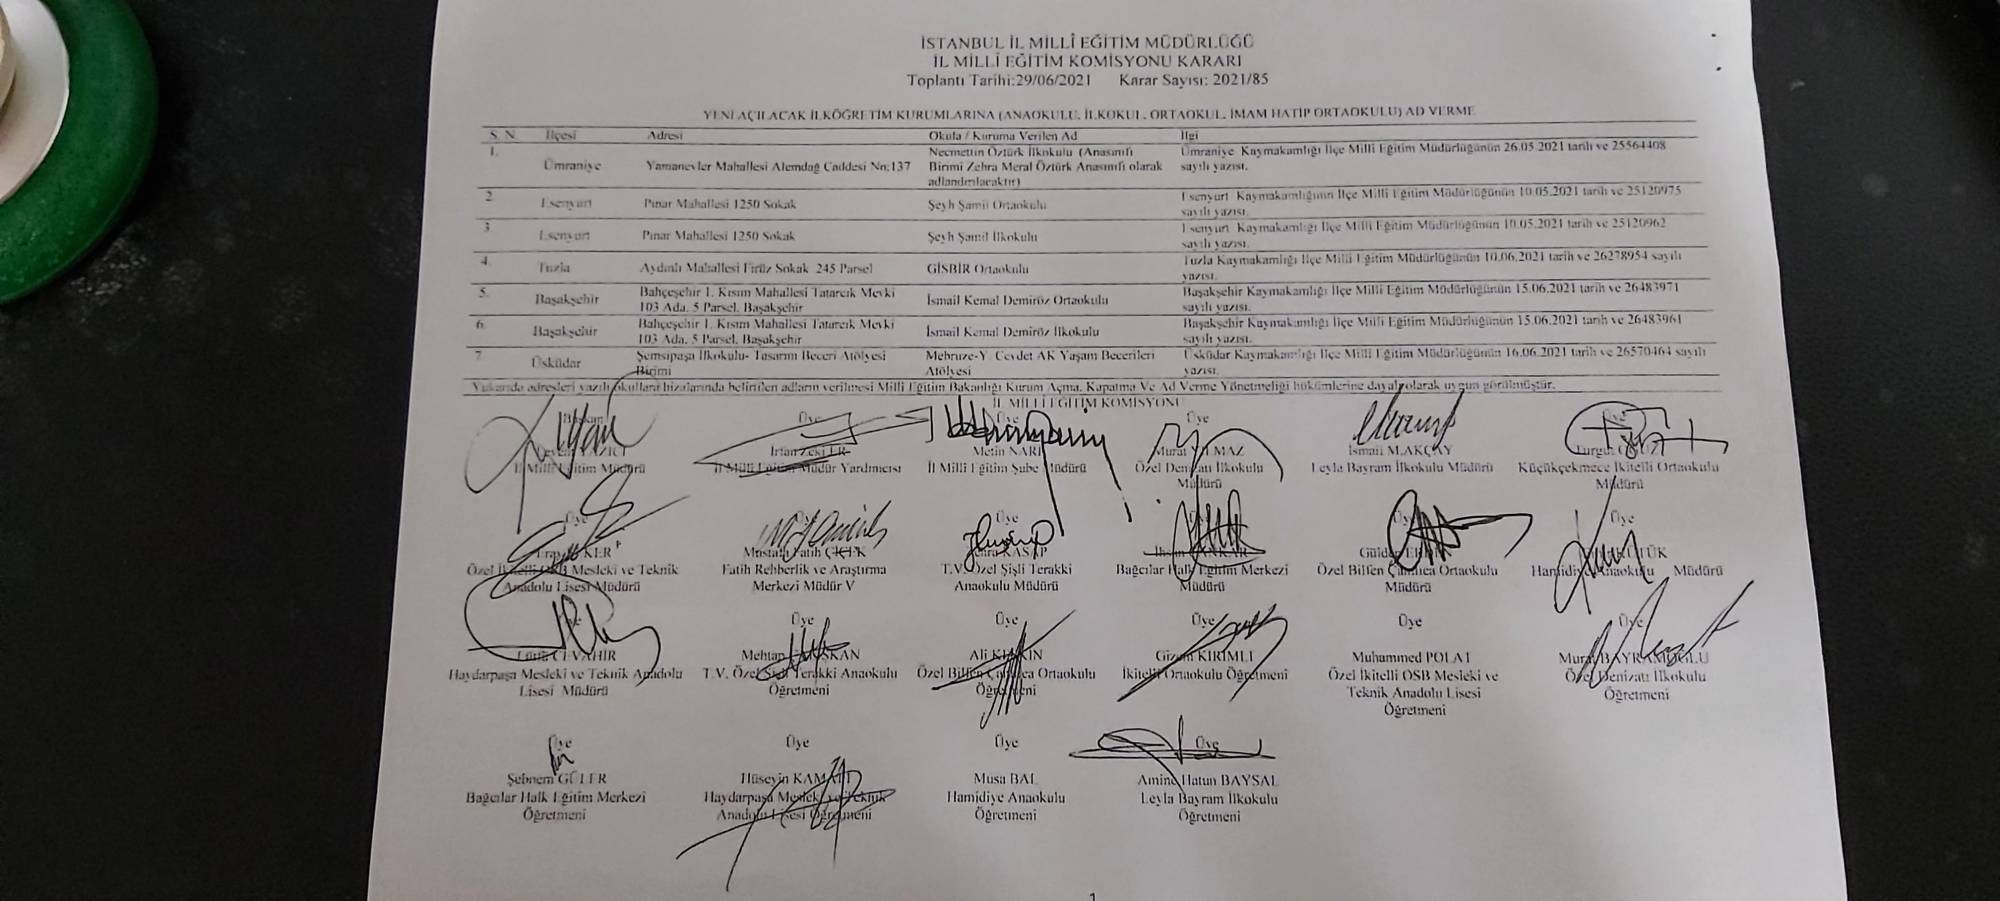 İSTANBUL İL MİLLÎ EĞİTİM MÜDÜRLÜĞÜ
İL MİLLÎ EĞİTİM KOMİSYONU KARARI
Toplantı Tarihi:29/06/2021 Karar Sayısı: 2021/85
YENİ AÇILACAK İLKÖĞRETİM KURUMLARINA (ANAOKULU, İLKOKUL, ORTAOKUL, İMAM HATİP ORTAOKULU) AD VERME
S. N. İlçesi Adresi Okula / Kuruma Verilen Ad İlgi
1. Ümraniye Yamanevler Mahallesi Alemdağ Caddesi No:137 Necmettin Öztürk İlkokulu (Anasınıfı Ümraniye Kaymakamlığı İlçe Millî Eğitim Müdürlüğünün 26.05.2021 tarih ve 25564408
Birimi Zehra Meral Öztürk Anasınıfı olarak sayılı yazısı.
adlandırılacaktır)
2. Esenyurt Pınar Mahallesi 1250 Sokak Şeyh Şamil Ortaokulu Esenyurt Kaymakamlığının İlçe Millî Eğitim Müdürlüğünün 10.05.2021 tarih ve 25120975
sayılı yazısı.
3 Esenyurt Pınar Mahallesi 1250 Sokak Şeyh Şamil İlkokulu Esenyurt Kaymakamlığı İlçe Millî Eğitim Müdürlüğünün 10.05.2021 tarih ve 25120962
sayılı yazısı.
4. Tuzla Aydınlı Mahallesi Firüz Sokak 245 Parsel GİSBİR Ortaokulu Tuzla Kaymakamlığı İlçe Millî Eğitim Müdürlüğünün 10.06.2021 tarih ve 26278954 sayılı
yazısı.
5. Başakşehir Bahçeşehir 1. Kısım Mahallesi Tatarcık Mevki İsmail Kemal Demiröz Ortaokulu Başakşehir Kaymakamlığı İlçe Millî Eğitim Müdürlüğünün 15.06.2021 tarih ve 26483971
103 Ada, 5 Parsel, Başakşehir sayılı yazısı.
6. Başakşehir Bahçeşehir 1. Kısım Mahallesi Tatarcık Mevki İsmail Kemal Demiröz İlkokulu Başakşehir Kaymakamlığı İlçe Millî Eğitim Müdürlüğünün 15.06.2021 tarih ve 26483961
103 Ada, 5 Parsel, Başakşehir sayılı yazısı.
7. Üsküdar Şemsipaşa İlkokulu- Tasarım Beceri Atölyesi Mebruze-Y. Cevdet AK Yaşam Becerileri Üsküdar Kaymakamlığı İlçe Millî Eğitim Müdürlüğünün 16.06.2021 tarih ve 26570464 sayılı
Birimi Atölyesi yazısı.
Yukarıda adresleri yazılı okulların hizalarında belirtilen adların verilmesi Millî Eğitim Bakanlığı Kurum Açma, Kapatma Ve Ad Verme Yönetmeliği hükümlerine dayalı olarak uygun görülmüştür.
İL MİLLÎ EĞİTİM KOMİSYONU
Başkan Üye Üye Üye Üye Üye
Levent YAZICI İrfan Zeki ER Metin NARİ Murat YILMAZ İsmail M.AKÇAY Turgut
İl Millî Eğitim Müdürü İl Millî Eğitim Müdür Yardımcısı İl Millî Eğitim Şube Müdürü Özel Denizatı İlkokulu Leyla Bayram İlkokulu Müdürü Küçükçekmece İkitelli Ortaokulu
Müdürü Müdürü
Üye Üye Üye Üye Üye
Mustafa Fatih ÇİÇEK KASAP Gülden
Özel İkitelli OSB Mesleki ve Teknik Fatih Rehberlik ve Araştırma T.V. Özel Şişli Terakki Bağcılar Halk Eğitim Merkezi Özel Bilfen Çamlıca Ortaokulu Hamidiye Anaokulu Müdürü
Anadolu Lisesi Müdürü Merkezi Müdür V Anaokulu Müdürü Müdürü Müdürü
Üye Üye Üye Üye Üye Üye
Lütfi CEVAHİR Mehtap Ali Gizem KIRIMLI Muhammed POLAT Murat BAYRAMOĞLU
Haydarpaşa Mesleki ve Teknik Anadolu T.V. Özel Şişli Terakki Anaokulu Özel Bilfen Çamlıca Ortaokulu İkitelli Ortaokulu Öğretmeni Özel İkitelli OSB Mesleki ve Özel Denizatı İlkokulu
Lisesi Müdürü Öğretmeni Öğretmeni Teknik Anadolu Lisesi Öğretmeni
Öğretmeni
Üye Üye Üye Üye
Şebnem GÜLER Hüseyin Musa BAL Amine Hatun BAYSAL
Bağcılar Halk Eğitim Merkezi Haydarpaşa Mesleki ve Teknik Hamidiye Anaokulu Leyla Bayram İlkokulu
Öğretmeni Anadolu Lisesi Öğretmeni Öğretmeni Öğretmeni
1